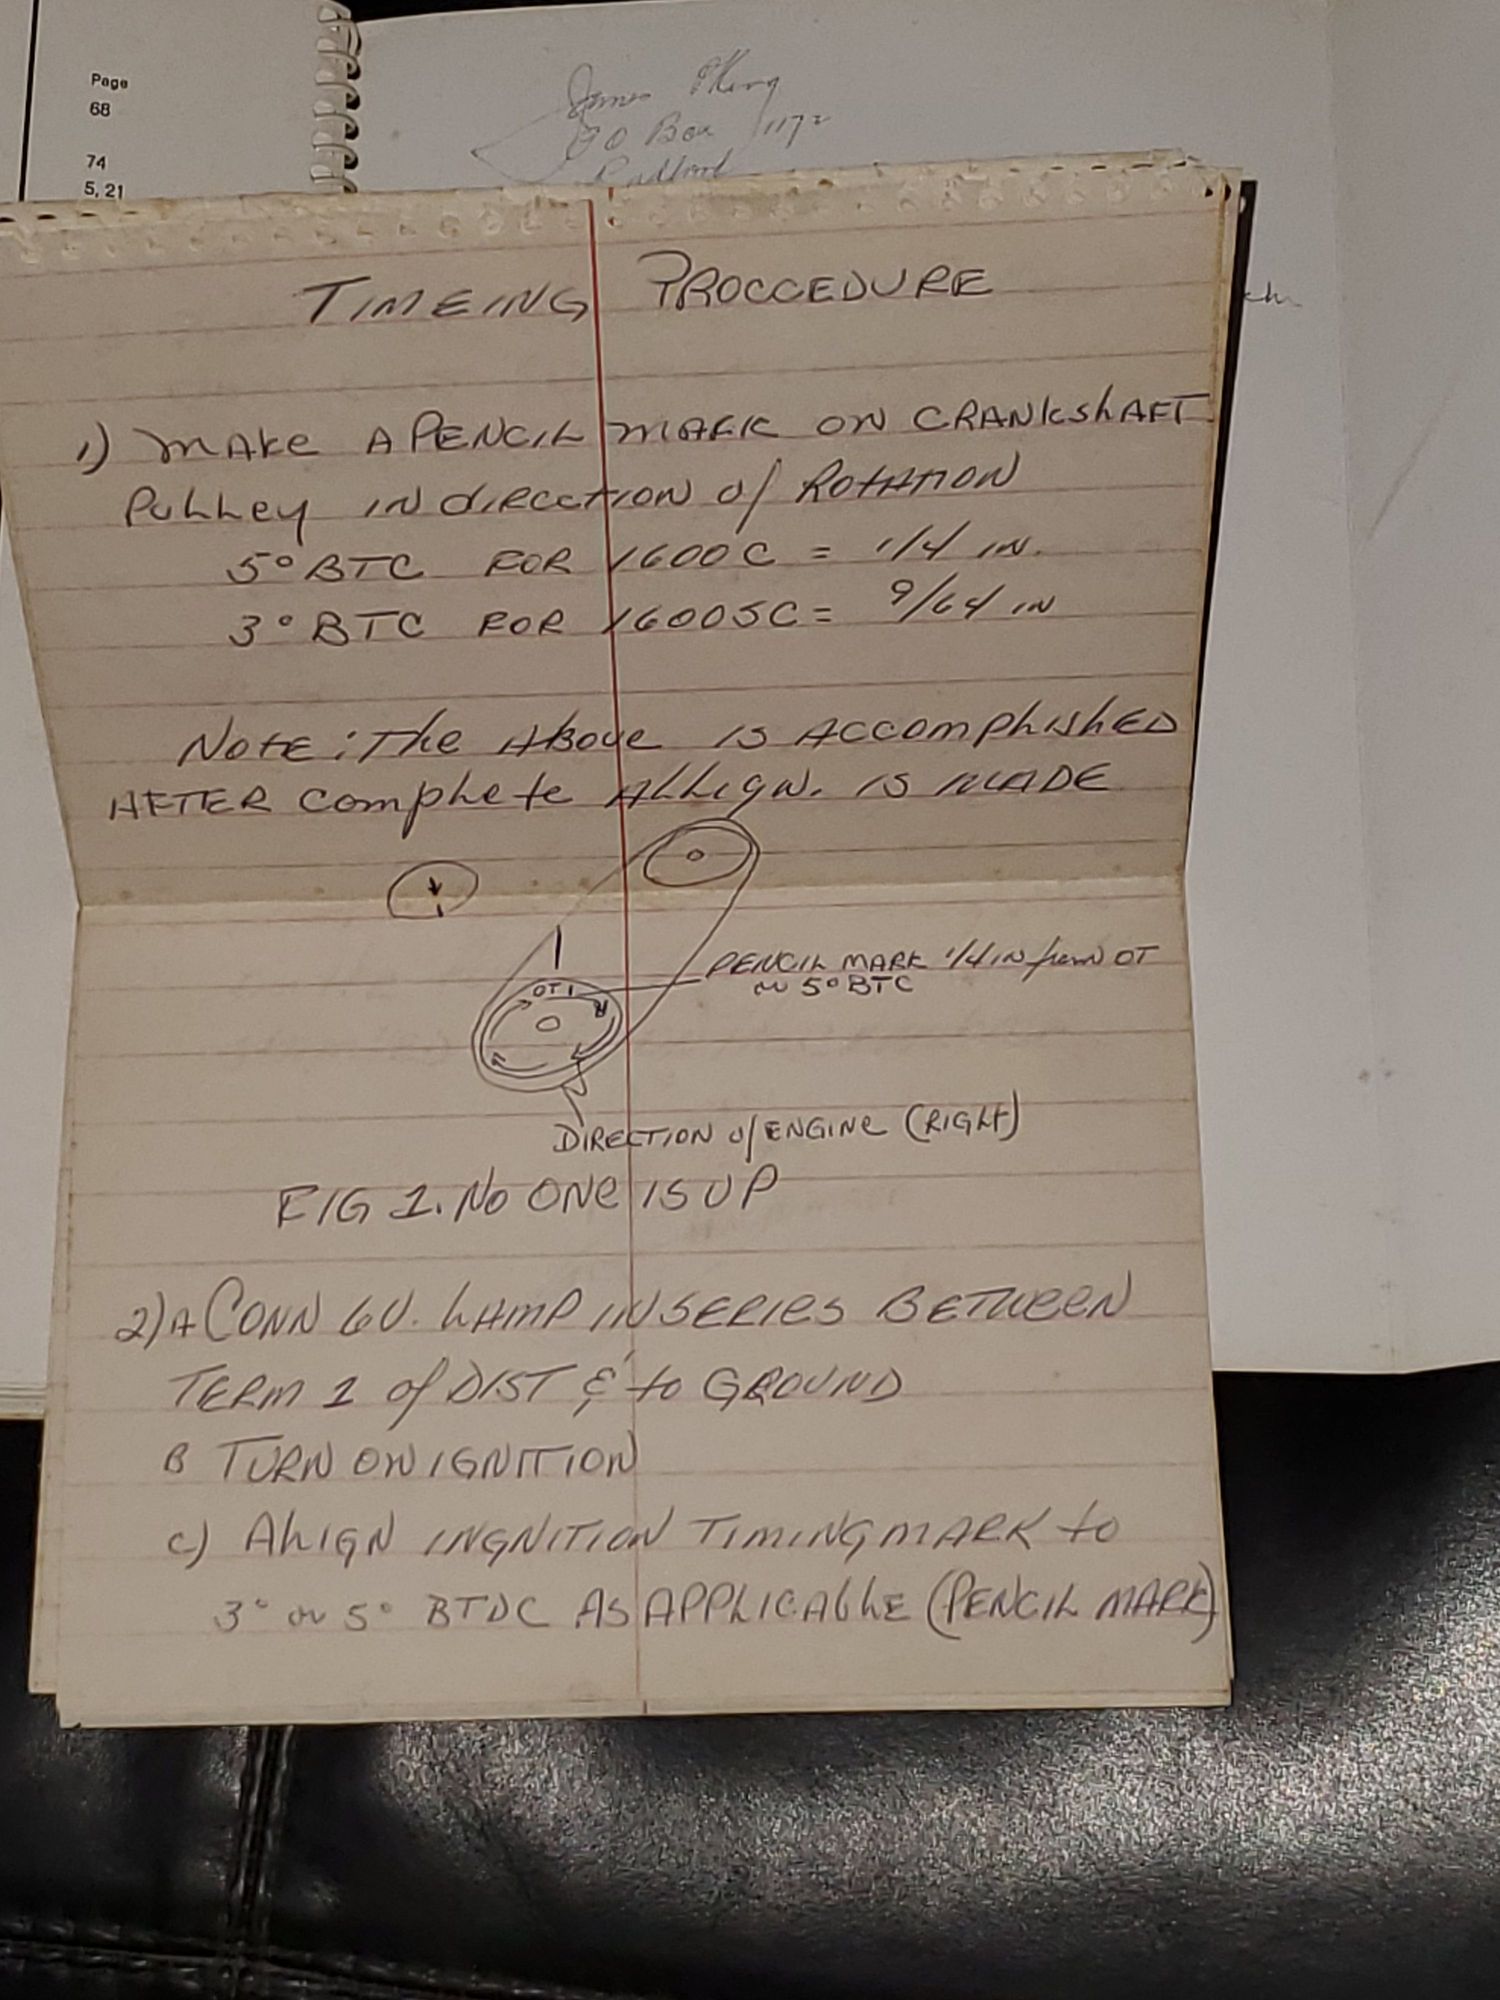 Page
68
74
5, 21
James
PO Box 1172
TIMEING PROCCEDURE
1) MAKE A PENCIL MARK ON CRANKSHAFT
PULLEY IN DIRECTION of ROTATION
5° BTC FOR 1600C = 1/4 IN.
3° BTC FOR 1600SC = 9/64 IN
NOTE: The ABOVE IS ACCOMPLISHED
AFTER COMPLETE ALLIGN. IS MADE
OT
PENCIL MARK 1/4 IN from OT
or 5° BTC
DIRECTION of ENGINE (RIGHT)
FIG 1. NO ONE IS UP
2) A CONN 6V. LAMP IN SERIES BETWEEN
TERM 1 of DIST & to GROUND
B TURN ON IGNITION
C) ALIGN INGNITION TIMING MARK to
3° or 5° BTDC AS APPLICABLE (PENCIL MARK)